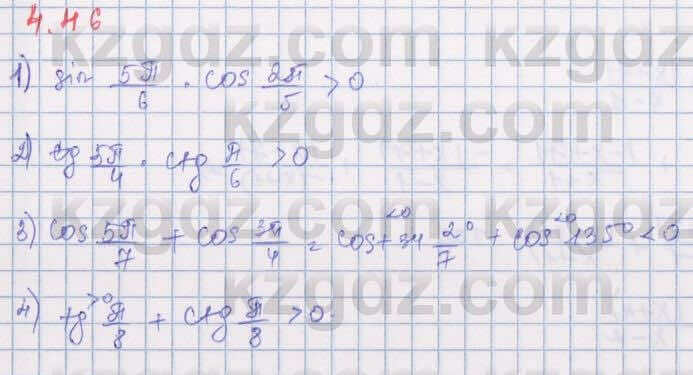 4.46
1) sin 5π/6 · cos 2π/5 > 0
2) tg 5π/4 · ctg π/6 > 0
3) cos 5π/7 + cos 3π/4 = cos 134 2/7° + cos 135° < 0
<0 <0
4) tg π/8 + ctg π/8 > 0
>0
kzgdz.com
kzgdz.com
kzgdz.com
kzgdz.com
kzgdz.com
kzgdz.com